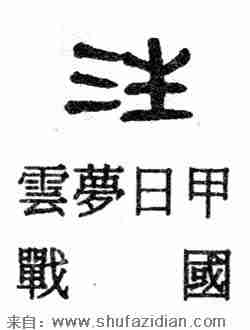 注
雲夢日甲
戰國
来自：www.shufazidian.com